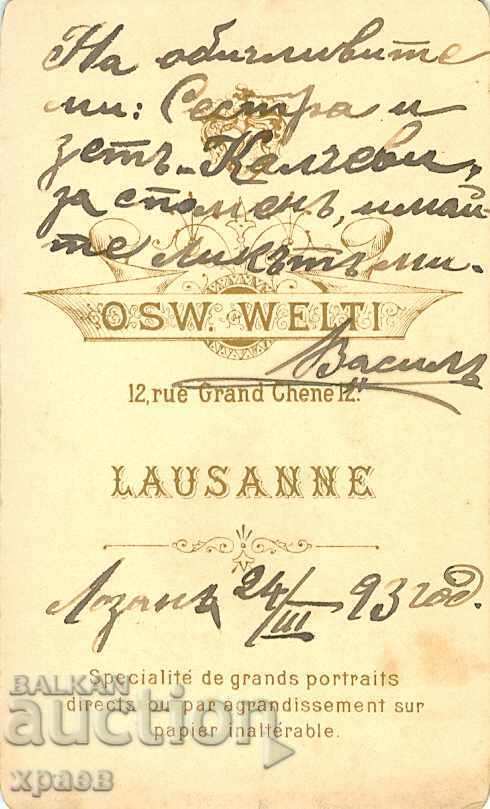 На обичливите
ми: Сестра и
зетъ „Калчеви„
за споменъ, имай-
те ликътъ ми.
OSW. WELTI
Василъ
12, rue Grand Chene 12.
LAUSANNE
Лозанъ 24/III 93 год.
Specialité de grands portraits
directs ou par agrandissement sur
papier inaltérable.
BALKAN
auction
храев